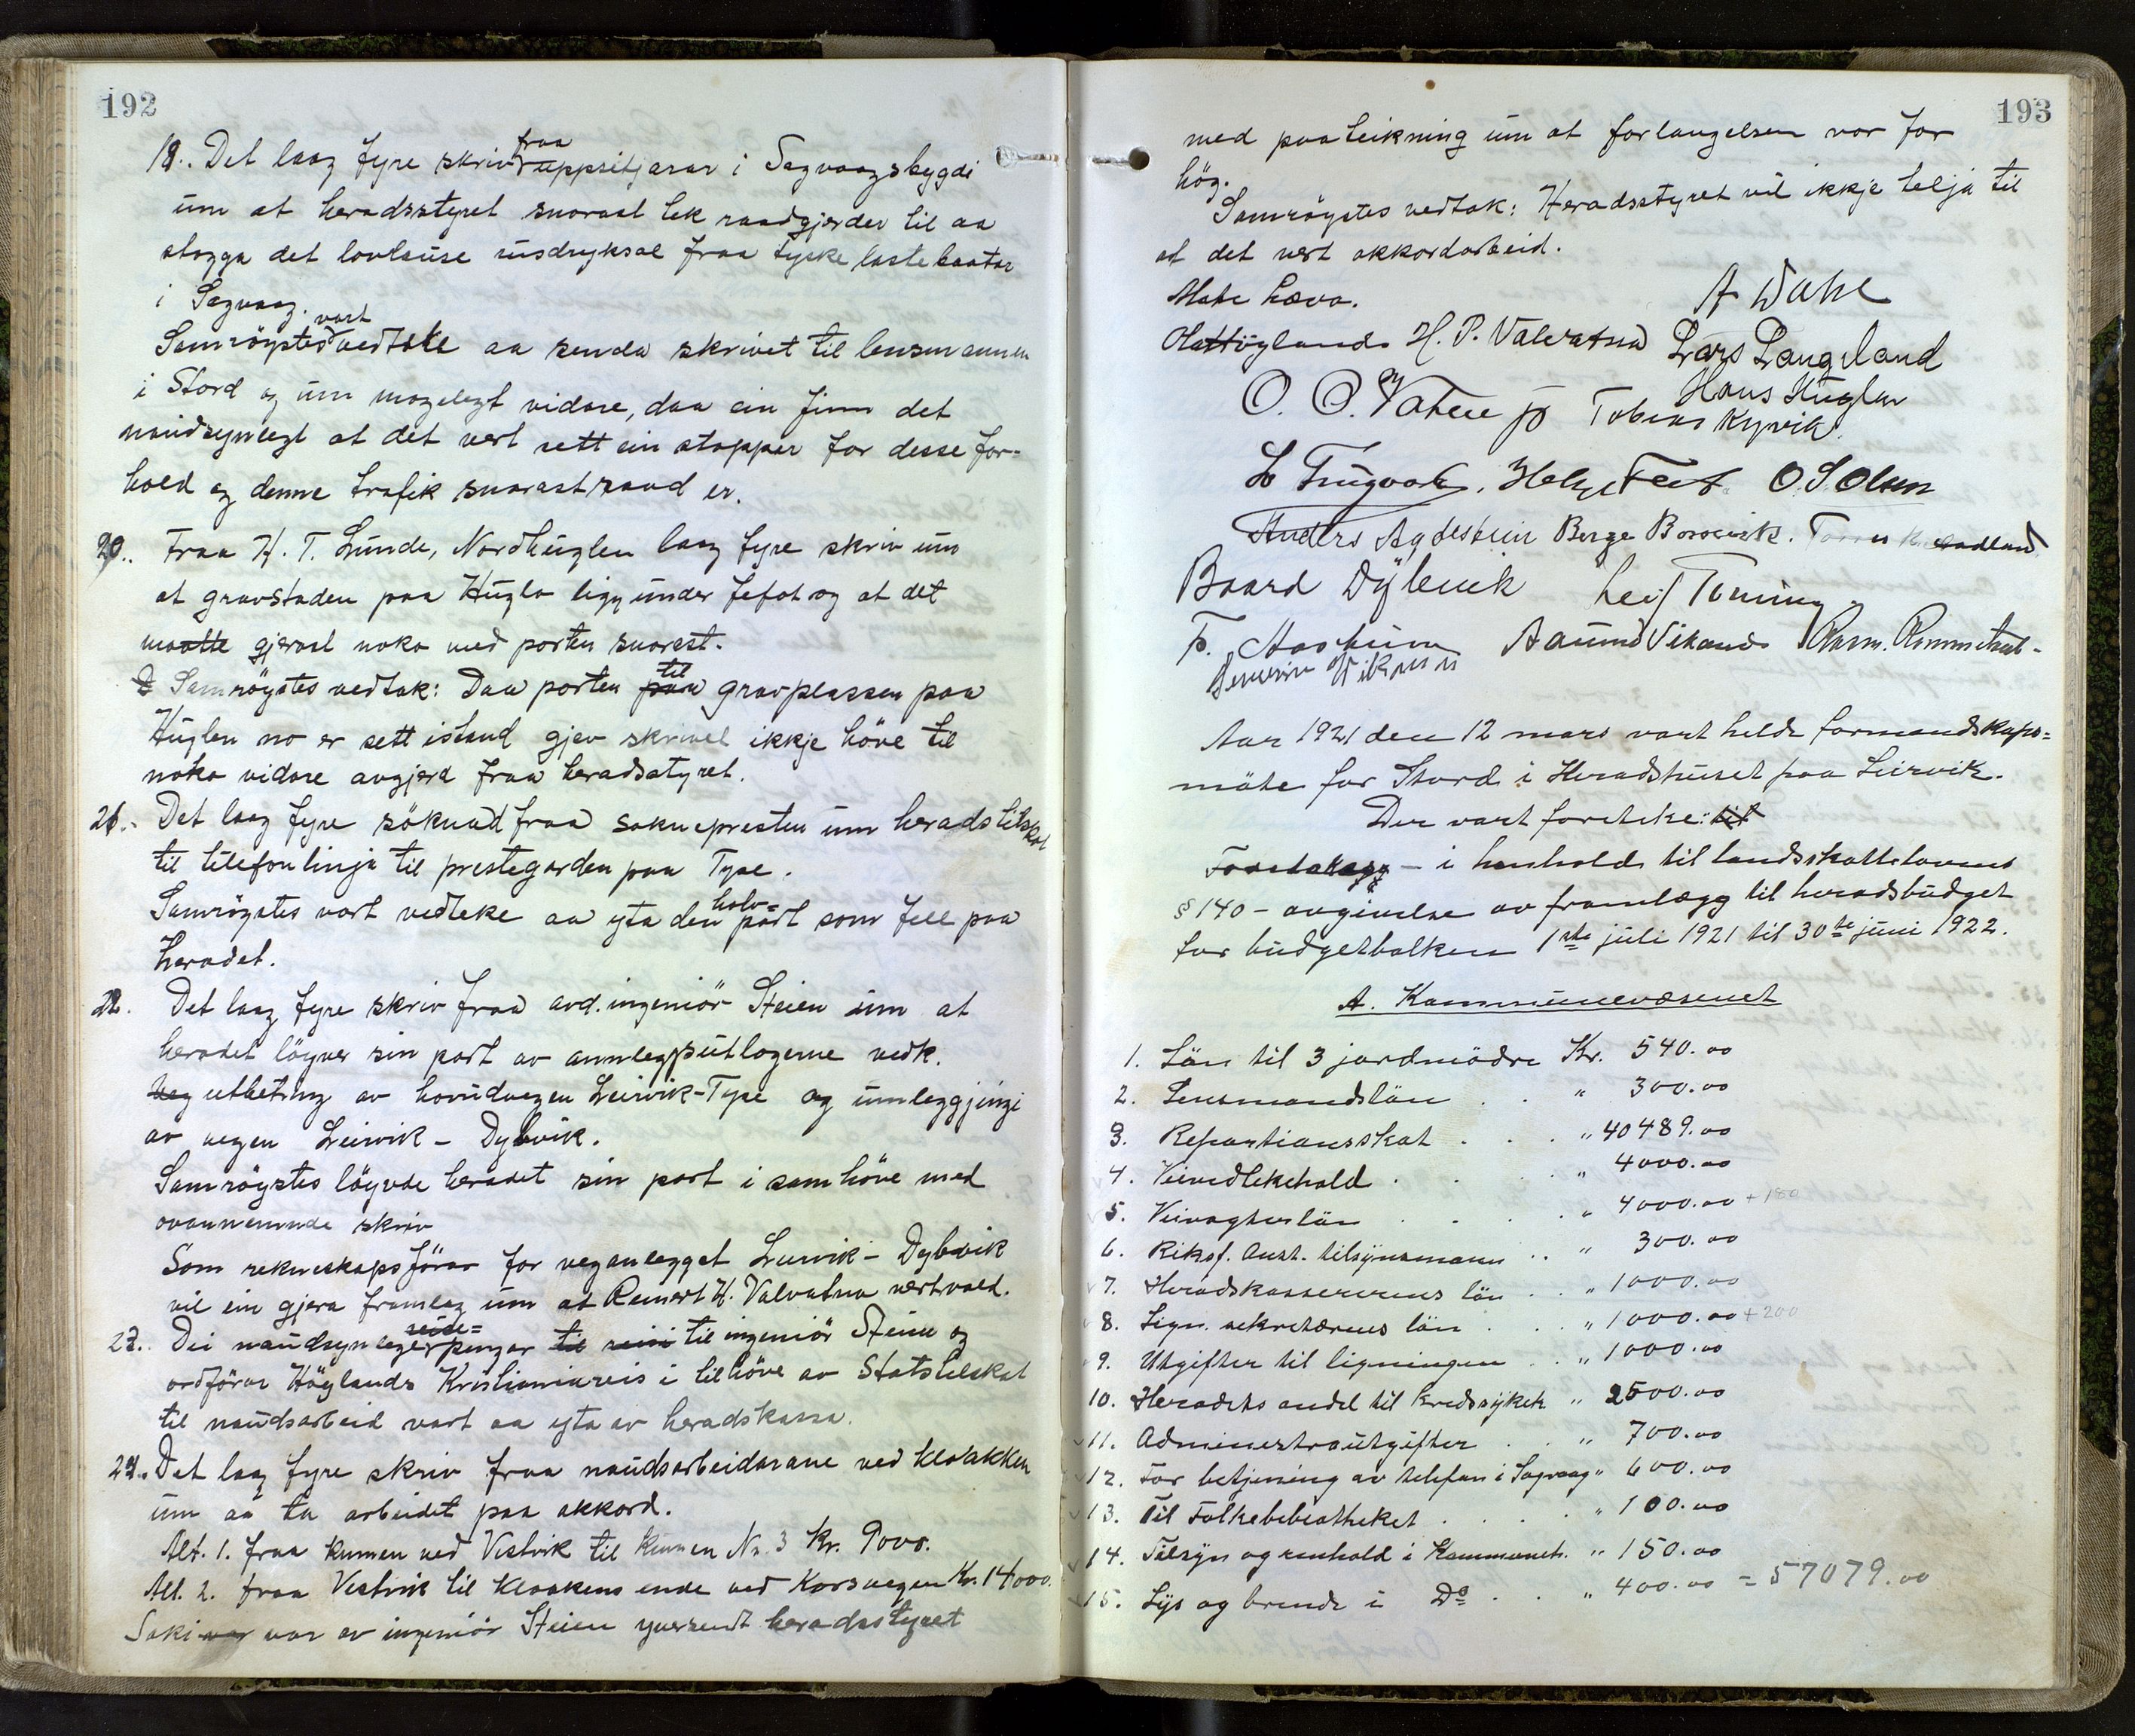 192
19. Det laag fyre skriv fraa uppsitjarar i Sagvaagsbygdi
um at heradsstyret snorast tek raadgjerder til aa
stogga det lovlause rusdryksal fraa tyske lastebaatar
i Sagvaag.
Samrøystes vart vedteke aa senda skrivet til lensmannen
i Stord og um mogelegt vidare, daa ein finn det
naudsynlegt at det vert sett ein stopper for desse for-
hold og denne trafik snarast raad er.
20. Fraa H. T. Lunde, Nordhuglen laag fyre skriv um
at gravstaden paa Hugla ligg under fefot og at det
maatte gjerast noko med porten snarest.
Samröystes vedtak: Daa porten til gravplassen paa
Huglen no er sett istand gjev skrivet ikkje höve til
noko vidare avgjerd fraa heradsstyret.
21. Det laag fyre söknad fraa soknepresten um heradstilskot
til telefonlinja til prestegarden paa Tyse.
Samröystes vart vedteke aa yta den halv-part som fell paa
Heradet.
22. Det laag fyre skriv fraa avd. ingeniör Steien um at
heradet löyver sin part av annleggsutlogerne vedk.
veg utbetring av hovudvegen Leirvik-Tyse og umleggjingi
av vegen Leirvik - Dybvik.
Samröystes löyvde heradet sin part i samhöve med
ovannemnde skriv
Som rekneskapsförar for veganlegget Leirvik - Dybvik
vil ein gjera framlag um at Reinert H. Valvatna vert vald.
23. Dei naudsynlege reise-pengar til reisi til ingeniör Steien og
ordförar Höglands Kristianiareis i tilhöve av Statstilskot
til naudsarbeid vart aa yta av heradskassa.
24. Det laag fyre skriv fraa naudsarbeidarane ved kloakken
um aa ta arbeidet paa akkord.
Alt. 1. fraa kumen ved Vestvik til kumen Nr. 3 Kr. 9000.
Alt. 2. fraa Vestvik til Kloakens ende ved Korsvegen Kr. 14000.
Saki var av ingeniör Steien yversendt heradsstyret
193
med paateikning um at forlangelsen var for
hög.
Samröystes vedtak: Heradsstyret vil ikkje telja til
at det vert akkordarbeid.
Møte hæva.
A Dahl
Hattöylands H. P. Valvatna Lars Langeland
Hans Huglen
O. O. Vatne Tobias Kyvik
Helge Feet O. S. Olsen
Anders Agdestein Berge Børsevik.
Baard Dybvik Leif Teming
Aamund Vikanes
Aar 1921 den 12 mars vart heldt formandskaps=
möte for Stord i Heradshuset paa Leirvik.
Der vart foreteke:
Foretokes - i henhold til landsskattelovens
§ 140 - avgivelse av framlægg til heradsbudget
for budgetbolken 1ste juli 1921 til 30te juni 1922.
A. Kommunevæsenet
1. Lön til 3 jordmödre Kr. 540.00
2. Lensmandslön . . " 300.00
3. Repartionsskat . . . " 40489.00
4. Veivedlikehold . . . " 4000.00
5. Veivogterlön . . . " 4000.00 + 180
6. Riksf. Anst. tilsynsmann . . " 300.00
7. Heradskassererens lön . . " 1000.00
8. Lign. sekretærens lön . . " 1000.00 + 200
9. Utgifter til ligningen . . " 1000.00
10. Heradets andel til kredssykek " 2500.00
11. Administrautgifter . . " 700.00
12. For betjening av telefon i Sagvaag " 600.00
13. Til Folkebibliotheket . . . . " 100.00
14. Tilsyn og renhold i Kommuneh. " 150.00
15. Lys og brende i Do . . " 400.00 = 57079.00